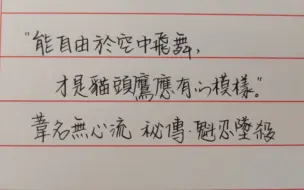 "能自由於空中飛舞,
才是貓頭鷹應有的模樣。"
葦名無心流 秘傳·魁忍墜殺